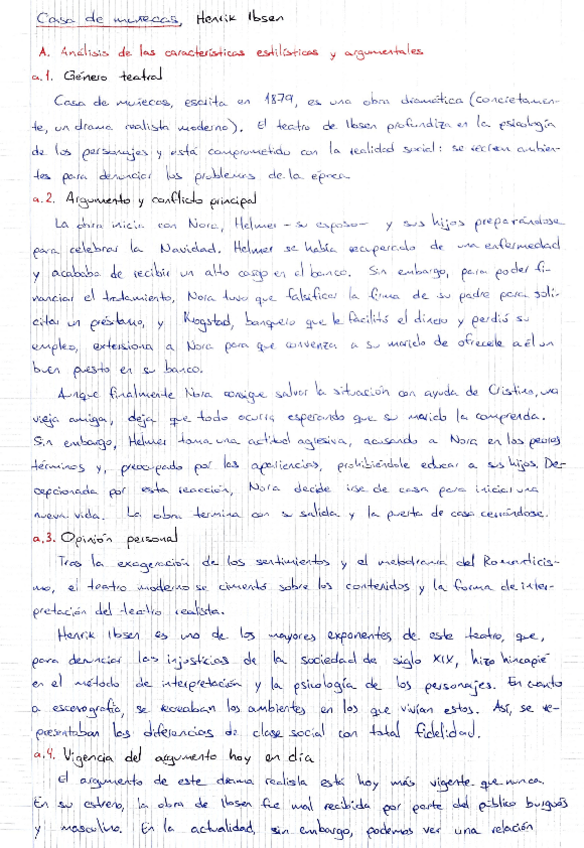 Casa de muñecas, Henrik Ibsen
A. Análisis de las características estilísticas y argumentales
a.1. Género teatral
Casa de muñecas, escrita en 1879, es una obra dramática (concretamen-
te, un drama realista moderno). El teatro de Ibsen profundiza en la psicología
de los personajes y está comprometido con la realidad social: se recrean ambien-
tes para denunciar los problemas de la época.
a.2. Argumento y conflicto principal
La obra inicia con Nora, Helmer - su esposo - y sus hijos preparándose
para celebrar la Navidad. Helmer se había recuperado de una enfermedad
y acababa de recibir un alto cargo en el banco. Sin embargo, para poder fi-
nanciar el tratamiento, Nora tuvo que falsificar la firma de su padre para soli-
citar un préstamo, y Krogstad, banquero que le facilitó el dinero y perdió su
empleo, extorsiona a Nora para que convenza a su marido de ofrecerle a él un
buen puesto en su banco.
Aunque finalmente Nora consigue salvar la situación con ayuda de Cristina, una
vieja amiga, deja que todo ocurra esperando que su marido la comprenda.
Sin embargo, Helmer toma una actitud agresiva, acusando a Nora en los peores
términos y, preocupado por las apariencias, prohibiéndole educar a sus hijos. De-
cepcionada por esta reacción, Nora decide irse de casa para iniciar una
nueva vida. La obra termina con su salida y la puerta de casa cerrándose.
a.3. Opinión personal
Tras la exageración de los sentimientos y el melodrama del Romanticis-
mo, el teatro moderno se cimentó sobre los contenidos y la forma de inter-
pretación del teatro realista.
Henrik Ibsen es uno de los mayores exponentes de este teatro, que,
para denunciar las injusticias de la sociedad de siglo XIX, hizo hincapié
en el método de interpretación y la psicología de los personajes. En cuanto
a escenografía, se recreaban los ambientes en los que vivían estos. Así, se re-
presentaban las diferencias de clase social con total fidelidad.
a.4. Vigencia del argumento hoy en día
El argumento de este drama realista está hoy más vigente que nunca.
En su estreno, la obra de Ibsen fue mal recibida por parte del público burgués
y masculino. En la actualidad, sin embargo, podemos ver una relación